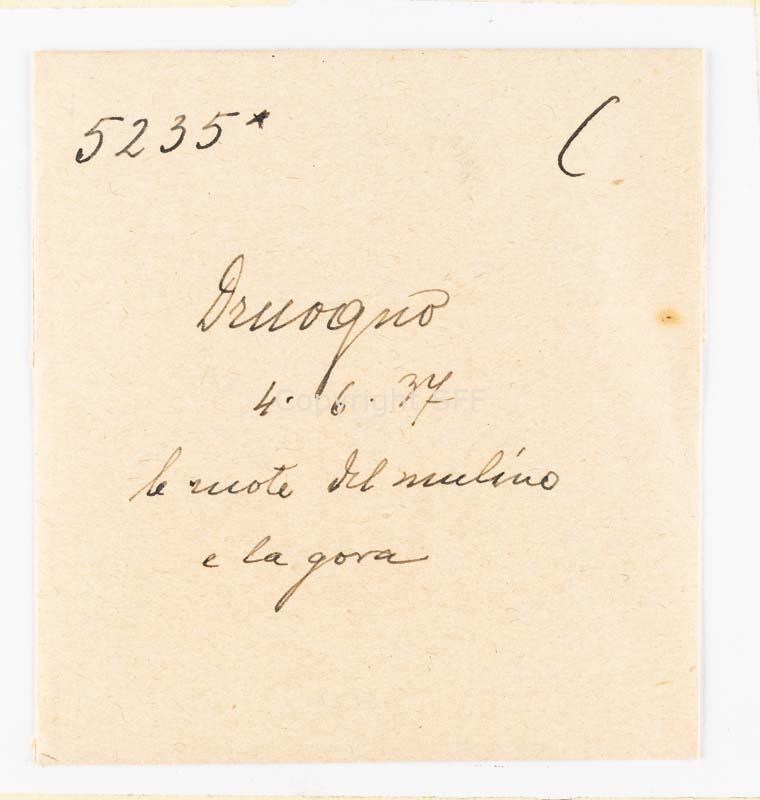 5235* (
Druogno
4. 6. 37
Copyright SFF
le ruote del mulino
e la gora